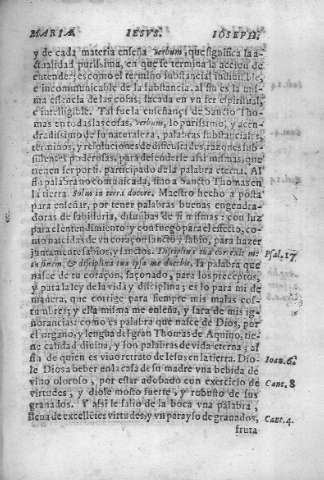 MARIA. IESVS. IOSEPH.
y de cada materia enseña verbum, que significa la a-
ctualidad purissima, en que se termina la accion de
entender; es como el termino substancial indiuisible,
e incomunicable de la substancia. al fin es la mis-
ma essencia de las cosas, sacada en vn ser espiritual,
e intelligible. Tal fue la enseñança de Sancto Tho-
mas en todas las cosas, verbum, lo purissimo, y acen-
dradissimo de lo naturaleza, palabras substanciales,
terminos, y resoluciones de difficultades, razones sub-
sistentes poderosas, para defenderse assi mismas, que
tienen ser por si. participado de la palabra eterna. Al
fin palabra no comunicada, sino a Sancto Thomas en
la tierra. docere. Maestro hecho a posta
para enseñar, por tener palabras buenas engendra-
doras de sabiduria, de si mismas: con luz
para el entendimiento y con fuego para el effecto, co-
mo nacidas de vn coraçon sancto y sabio, para hazer
juntamente sabios, y sanctos. Disciplina tua correxit me Psal. 17
in finem, & disciplina tua ipsa me docebit. la palabra que
nasce de tu coraçon, façonado, para los preceptos,
y para la ley de la vida y disciplina; es lo para mi de
manera, que corrige para siempre mis malas cos-
tumbres; y ella misma me enseña, y saca de mis ig-
norancias: como es palabra que nasce de Dios, por
el organo, y lengba del gran Thomas de Aquino, tie-
ne calidad diuina, y son palabras de vida eterna; al
fin de quien es viuo retrato de Iesus en la tierra. Dio- Ioan. 6.
le Dios a beber en la casa de su madre vna bebida de
vino oloroso, por estar adobado con exercicio de Cant. 8
virtudes, y diole mosto fuerte, y robusto de sus
granados. Y assi le salio de la boca vna palabra,
llena de excellẽtes virtudes, y vn parayso de granados, Cant. 4.
fruta